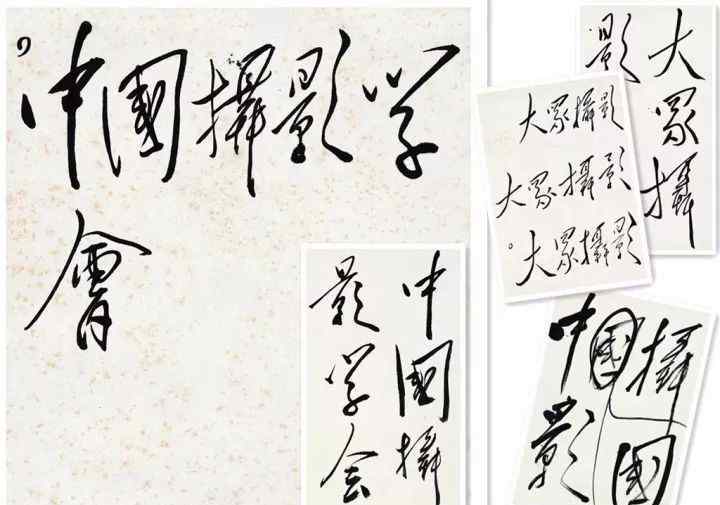 中國攝影学
會
中國攝
影学会
大眾攝
影
大眾攝影
大眾攝影
大眾攝影
中國攝
影國